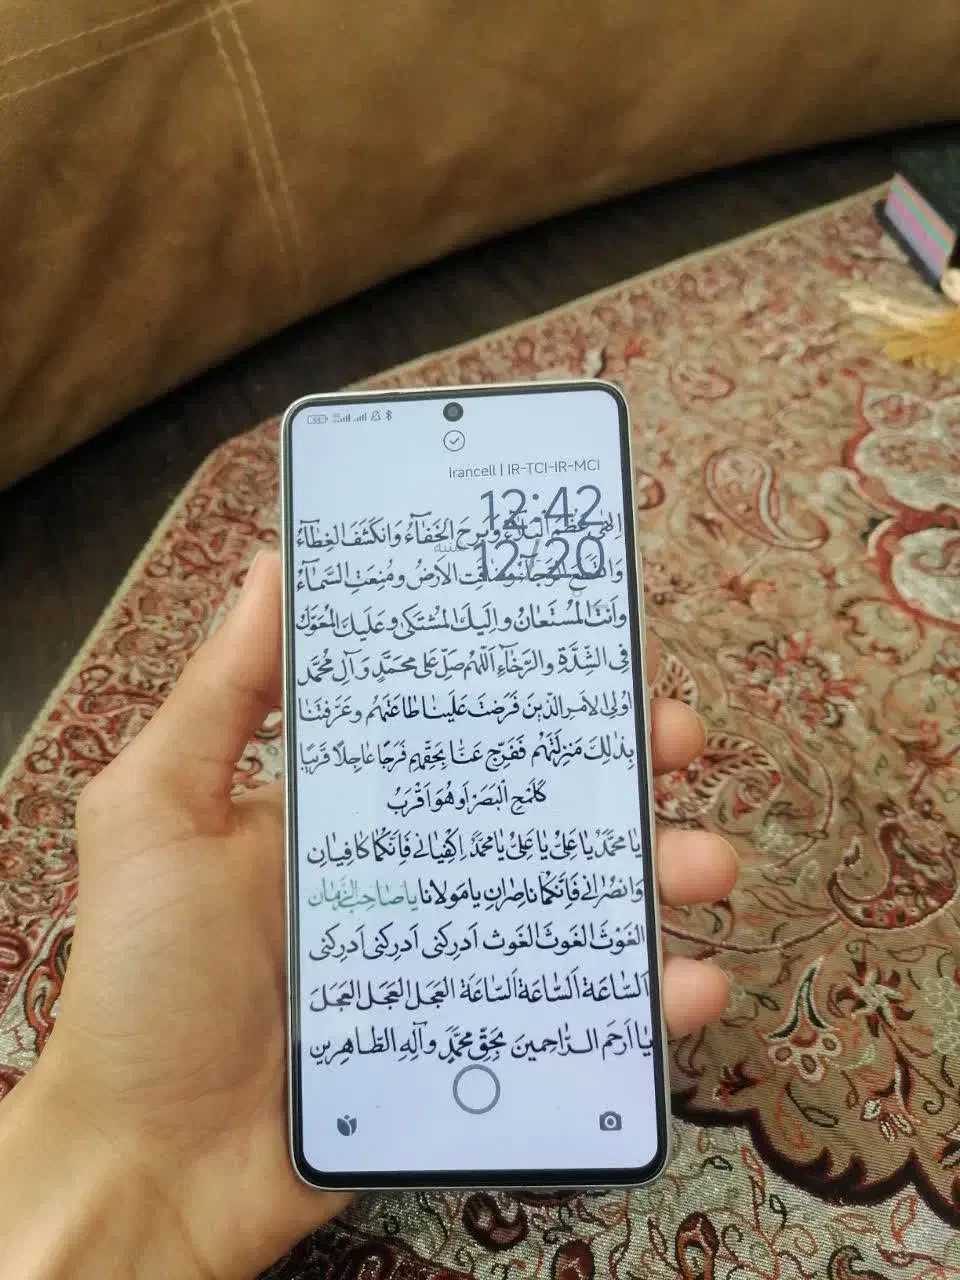 Irancell | IR-TCI-IR-MCI
12:42
12/20
اِلهی عَظُمَ البَلاءُ وَبَرِحَ الخَفاءُ وَانکَشَفَ الغِطاءُ
وَانقَطَعَ الرَّجاءُ وَضاقَتِ الاَرضُ ومُنِعَتِ السَّماءُ
وَاَنتَ المُستَعانُ وَاِلَیكَ المُشتَکی وعَلَیكَ المُعَوَّلُ
فِی الشِّدَّةِ والرَّخاءِ اَللّهُمَّ صَلِّ عَلی محمَّدٍ وَآلِ محُمَّد
اوُلِی الاَمرِ الَّذینَ فَرَضتَ عَلَینا طاعَتَهُم وَعَرَّفتَنا
بِذلِكَ مَنزِلَتَهُم فَفَرِّج عَنّا بِحَقِّهِم فَرَجًا عاجِلًا قَریبًا
کَلَمحِ البَصَرِ اَو هُوَ اَقرَبُ
یا محَمَّدُ یا عَلِیُّ یا عَلِیُّ یا محَمَّدُ اِکفِیانی فَاِنَّکُما کافِیانِ
وَانصُرانی فَاِنَّکُما ناصِرانِ یا مَولانا یا صاحِبَ الزَّمان
الغَوثَ الغَوثَ الغَوث اَدرِکنی اَدرِکنی اَدرِکنی
اَلسّاعَةَ اَلسّاعَةَ اَلسّاعَةَ العَجَلَ العَجَلَ العَجَلَ
یا اَرحَمَ الرّاحِمینَ بِحَقِّ محَمَّدٍ وَآلِهِ الطّاهِرین